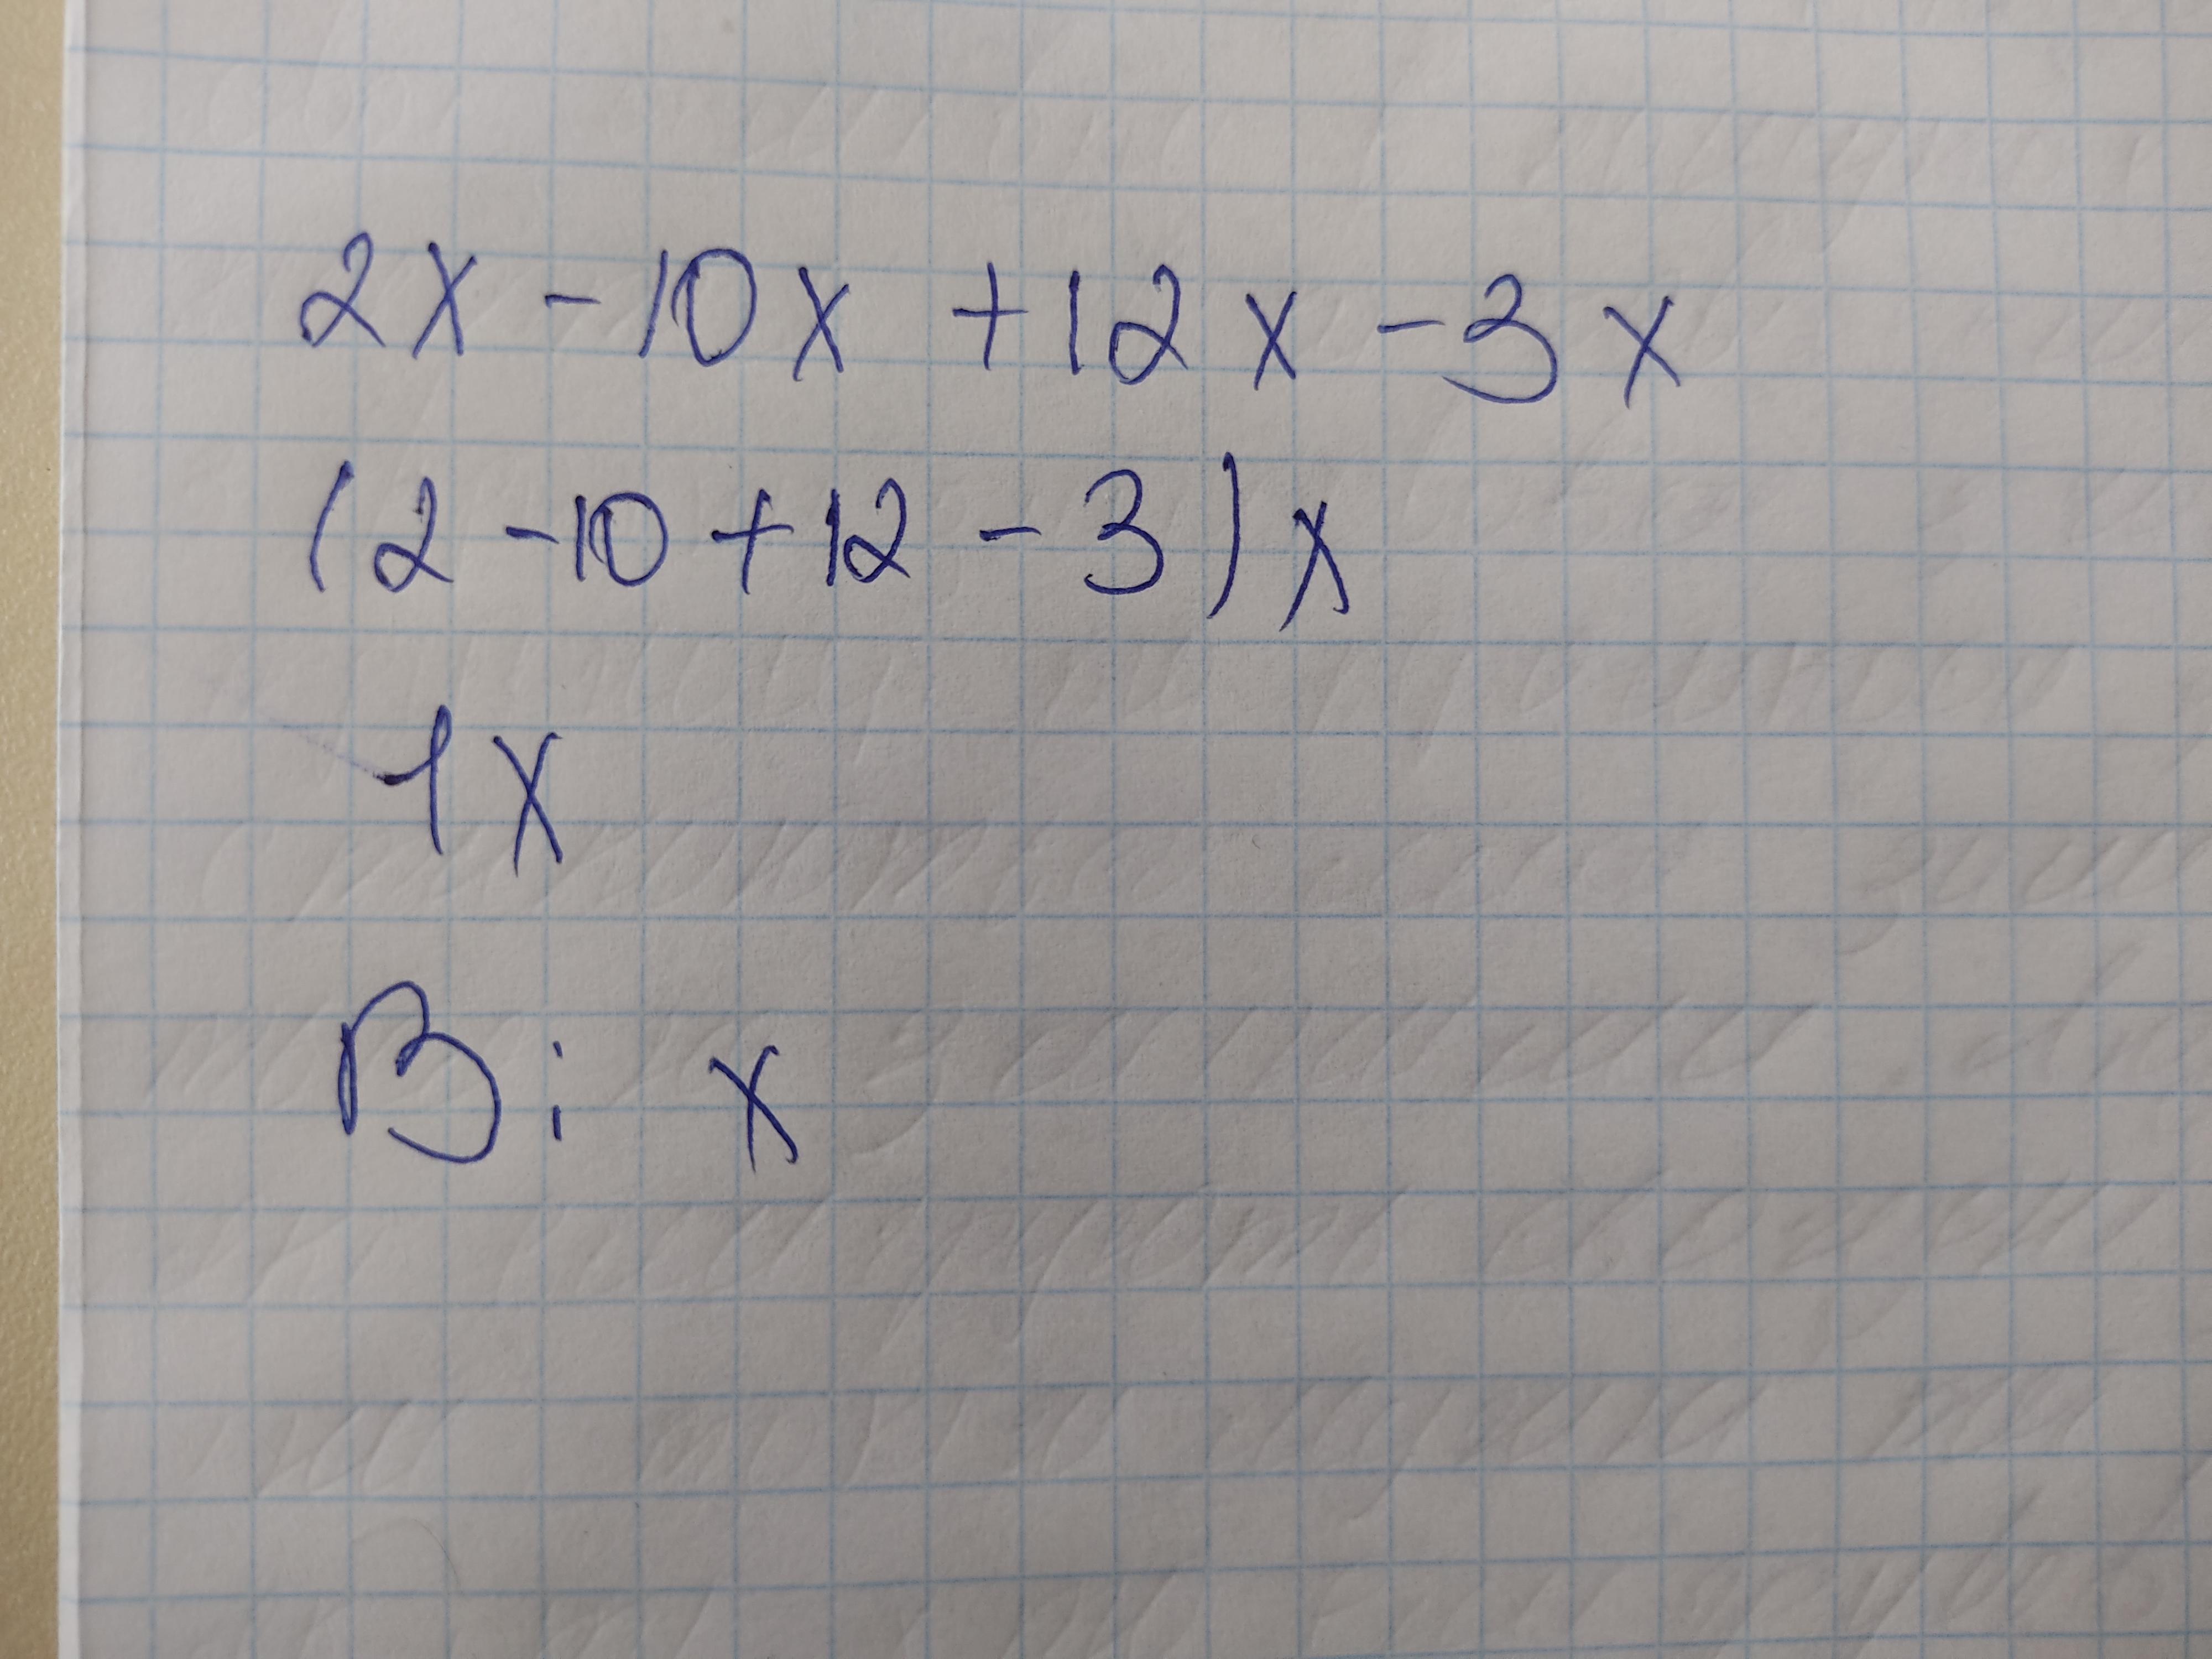 2x - 10x + 12x - 3x
(2 - 10 + 12 - 3)x
1x
В: x